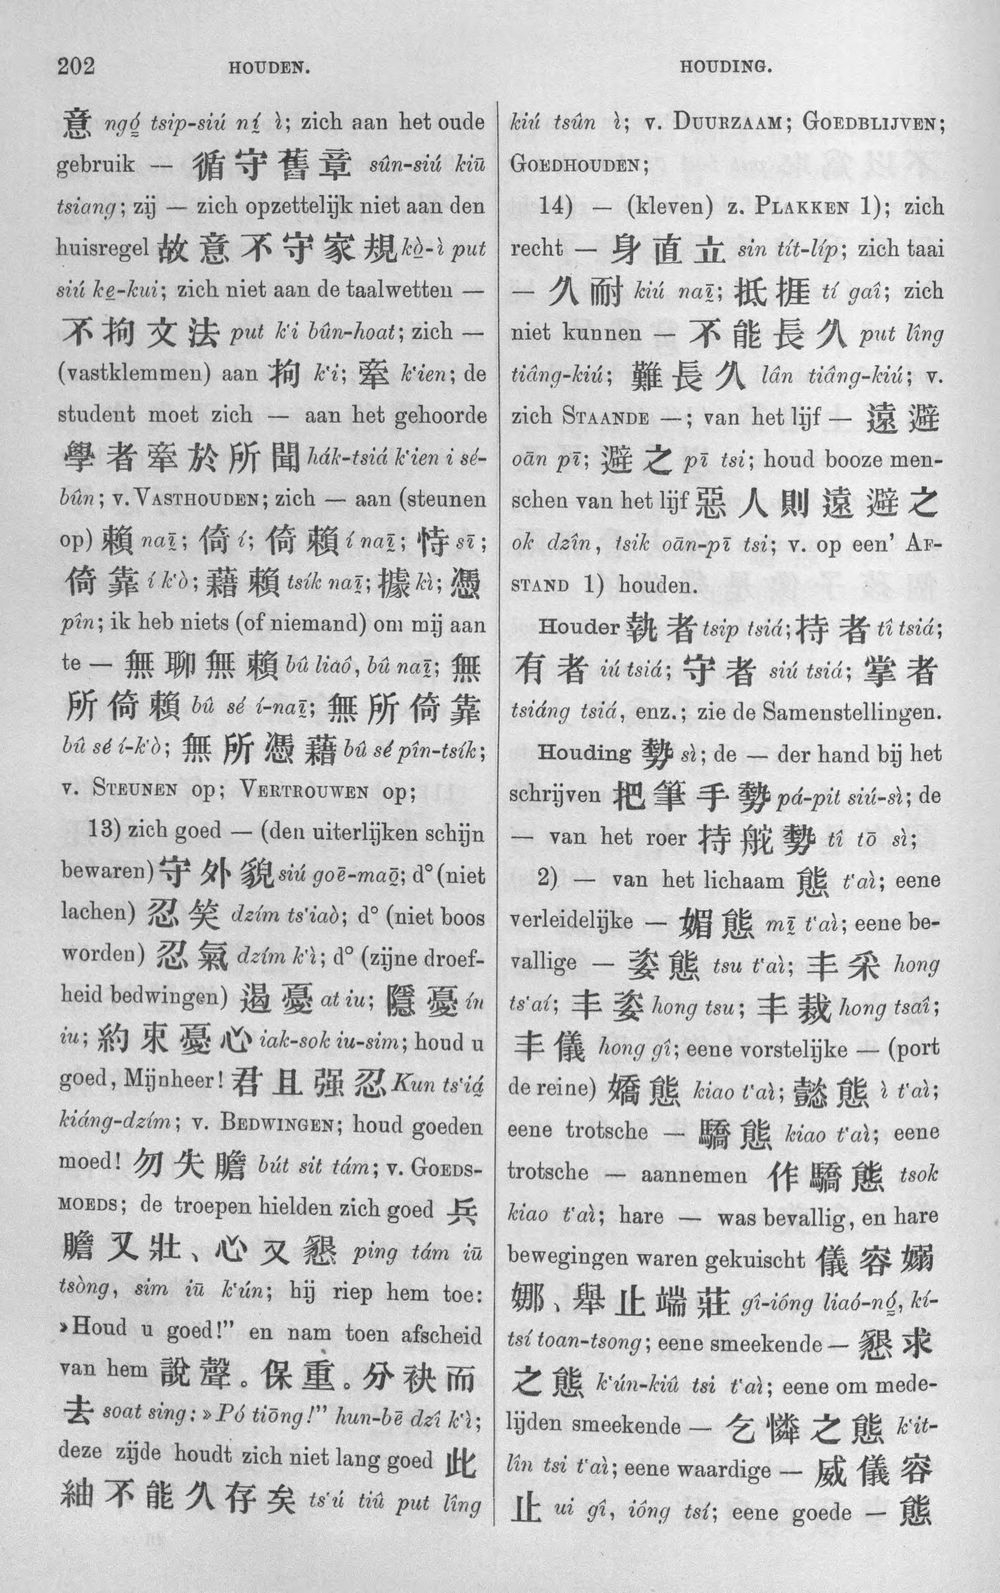 202
HOUDEN.
HOUDING.
意 ngó tsip-siú ní ì; zich aan het oude
gebruik — 循守舊章 sûn-siú kiū
tsiang; zij — zich opzettelijk niet aan den
huisregel 故意不守家規 kò-ì put
siú ke-kui; zich niet aan de taalwetten —
不拘文法 put k'i bûn-hoat; zich —
(vastklemmen) aan 拘 k'i; 牽 k'ien; de
student moet zich — aan het gehoorde
學者牽於所聞 hák-tsiá k'ien i sé-
bûn; v. VASTHOUDEN; zich — aan (steunen
op) 賴 naī; 倚 í; 倚賴 í naī; 恃 sī;
倚靠 í k'ò; 藉賴 tsík naī; 據 kì; 憑
pîn; ik heb niets (of niemand) om mij aan
te — 無聊無賴 bû liaô, bû naī; 無
所倚賴 bû sé í-naī; 無所倚靠
bû sé í-k'ò; 無所憑藉 bû sé pîn-tsík;
v. STEUNEN op; VERTROUWEN op;
13) zich goed — (den uiterlijken schijn
bewaren) 守外貌 siú goē-maō; d° (niet
lachen) 忍笑 dzím ts'iaò; d° (niet boos
worden) 忍氣 dzím k'ì; d° (zijne droef-
heid bedwingen) 遏憂 at iu; 隱憂 ín
iu; 約束憂心 iak-sok iu-sim; houd u
goed, Mijnheer! 君且强忍 Kun ts'iá
kiáng-dzím; v. BEDWINGEN; houd goeden
moed! 勿失膽 bút sit tám; v. GOEDS-
MOEDS; de troepen hielden zich goed 兵
膽又壯、心又懇 ping tám iū
tsòng, sim iū k'ún; hij riep hem toe:
»Houd u goed!" en nam toen afscheid
van hem 說聲。保重。分袂而
去 soat sing: »Pó tiōng!" hun-bē dzî k'ì;
deze zijde houdt zich niet lang goed 此
紬不能久存矣 ts'ú tiû put lîng
kiú tsûn ì; v. DUURZAAM; GOEDBLIJVEN;
GOEDHOUDEN;
14) — (kleven) z. PLAKKEN 1); zich
recht — 身直立 sin tít-líp; zich taai
— 久耐 kiú naī; 抵捱 tí gaî; zich
niet kunnen — 不能長久 put lîng
tiâng-kiú; 難長久 lân tiâng-kiú; v.
zich STAANDE —; van het lijf — 遠避
oān pī; 避之 pī tsi; houd booze men-
schen van het lijf 惡人則遠避之
ok dzîn, tsik oān-pī tsi; v. op een' AF-
STAND 1) houden.
Houder 執者 tsip tsiá; 持者 tî tsiá;
有者 iú tsiá; 守者 siú tsiá; 掌者
tsiáng tsiá, enz.; zie de Samenstellingen.
Houding 勢 sì; de — der hand bij het
schrijven 把筆手勢 pá-pit siú-sì; de
— van het roer 持舵勢 tî tō sì;
2) — van het lichaam 態 t'aì; eene
verleidelijke — 媚態 mī t'aì; eene be-
vallige — 姿態 tsu t'aì; 丰采 hong
ts'aí; 丰姿 hong tsu; 丰裁 hong tsaî;
丰儀 hong gî; eene vorstelijke — (port
de reine) 嬌態 kiao t'aì; 懿態 ì t'aì;
eene trotsche — 驕態 kiao t'aì; eene
trotsche — aannemen 作驕態 tsok
kiao t'aì; hare — was bevallig, en hare
bewegingen waren gekuischt 儀容嫋
娜、舉止端莊 gî-iông liaó-nó, kí-
tsí toan-tsong; eene smeekende — 懇求
之態 k'ún-kiû tsi t'aì; eene om mede-
lijden smeekende — 乞憐之態 k'it-
lîn tsi t'aì; eene waardige — 威儀容
止 ui gî, iông tsí; eene goede — 態